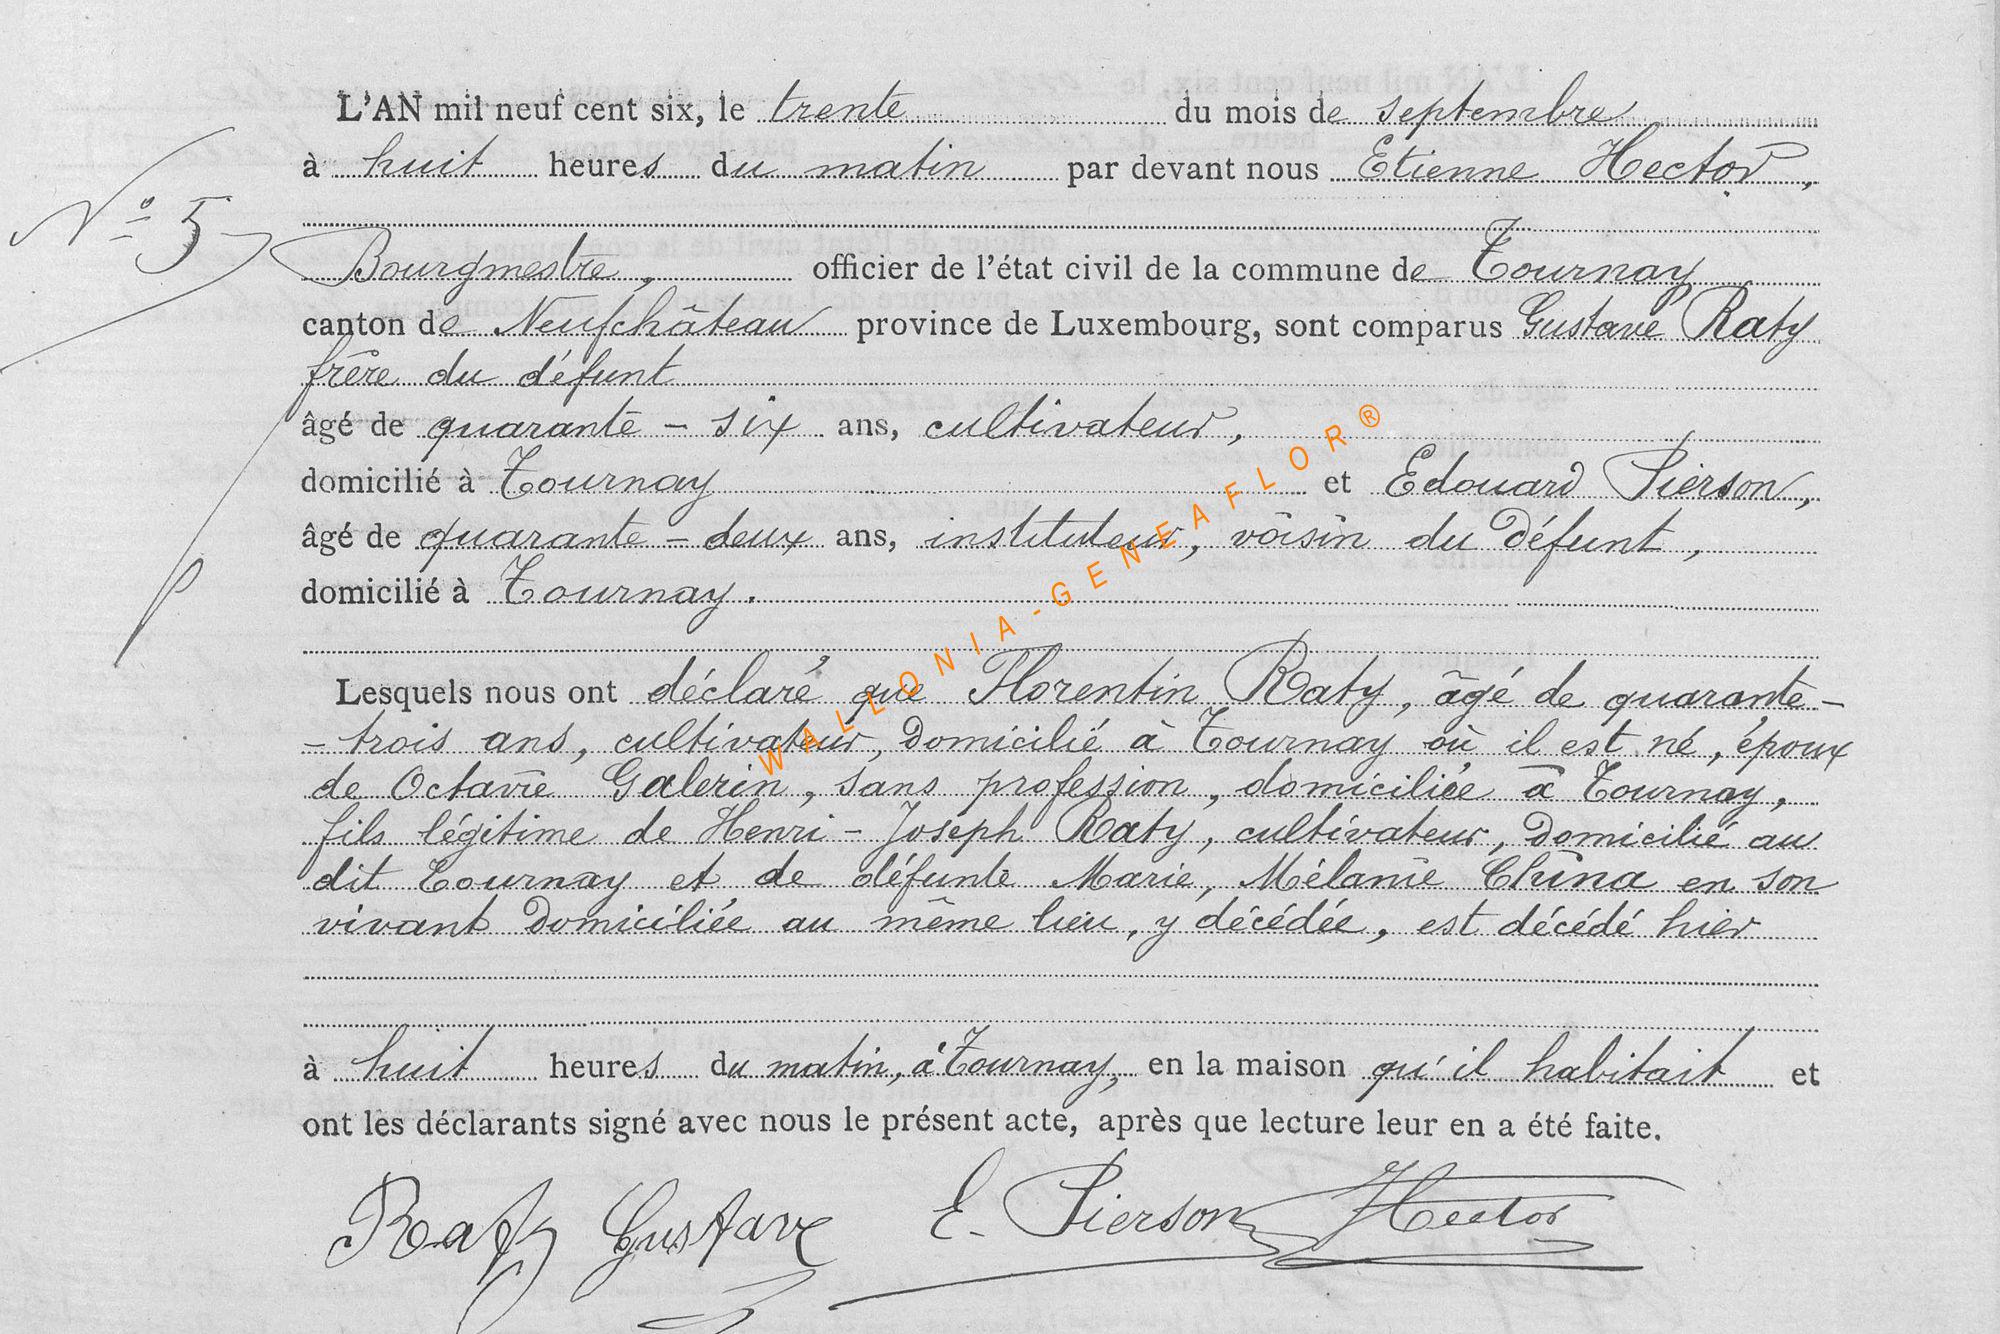 L'AN mil neuf cent six, le trente du mois de septembre
à huit heures du matin par devant nous Etienne Hector,
N° 5
Bourgmestre, officier de l'état civil de la commune de Tournay
canton de Neufchâteau province de Luxembourg, sont comparus Gustave Raty
frère du défunt
âgé de quarante-six ans, cultivateur,
domicilié à Tournay et Edouard Pierson,
âgé de quarante-deux ans, instituteur, voisin du défunt,
domicilié à Tournay.
WALLONIA-GENEAFLOR®
Lesquels nous ont déclaré que Florentin Raty, âgé de quarante-
-trois ans, cultivateur, domicilié à Tournay où il est né, époux
de Octavie Galerin, sans profession, domiciliée à Tournay,
fils légitime de Henri-Joseph Raty, cultivateur, domicilié au
dit Tournay et de défunte Marie, Mélanie China en son
vivant domiciliée au même lieu, y décédée, est décédé hier
à huit heures du matin, à Tournay, en la maison qu'il habitait et
ont les déclarants signé avec nous le présent acte, après que lecture leur en a été faite.
Raty Gustave E. Pierson Hector